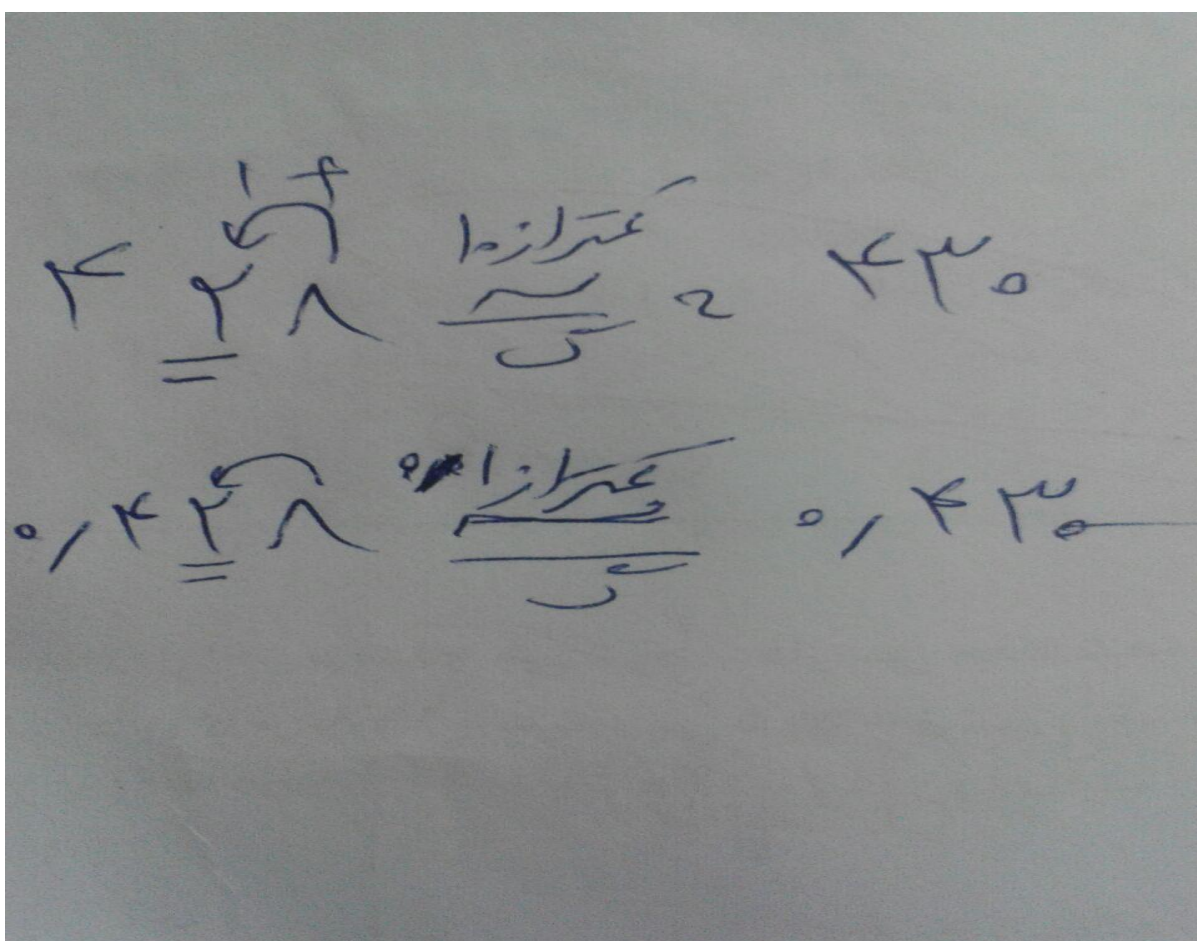 +۱
۴۲۸ کمتر از ۱۰ گ ≃ ۴۳۰
۰٫۴۲۸ کمتر از ۰٫۱ گ ۰٫۴۳۰